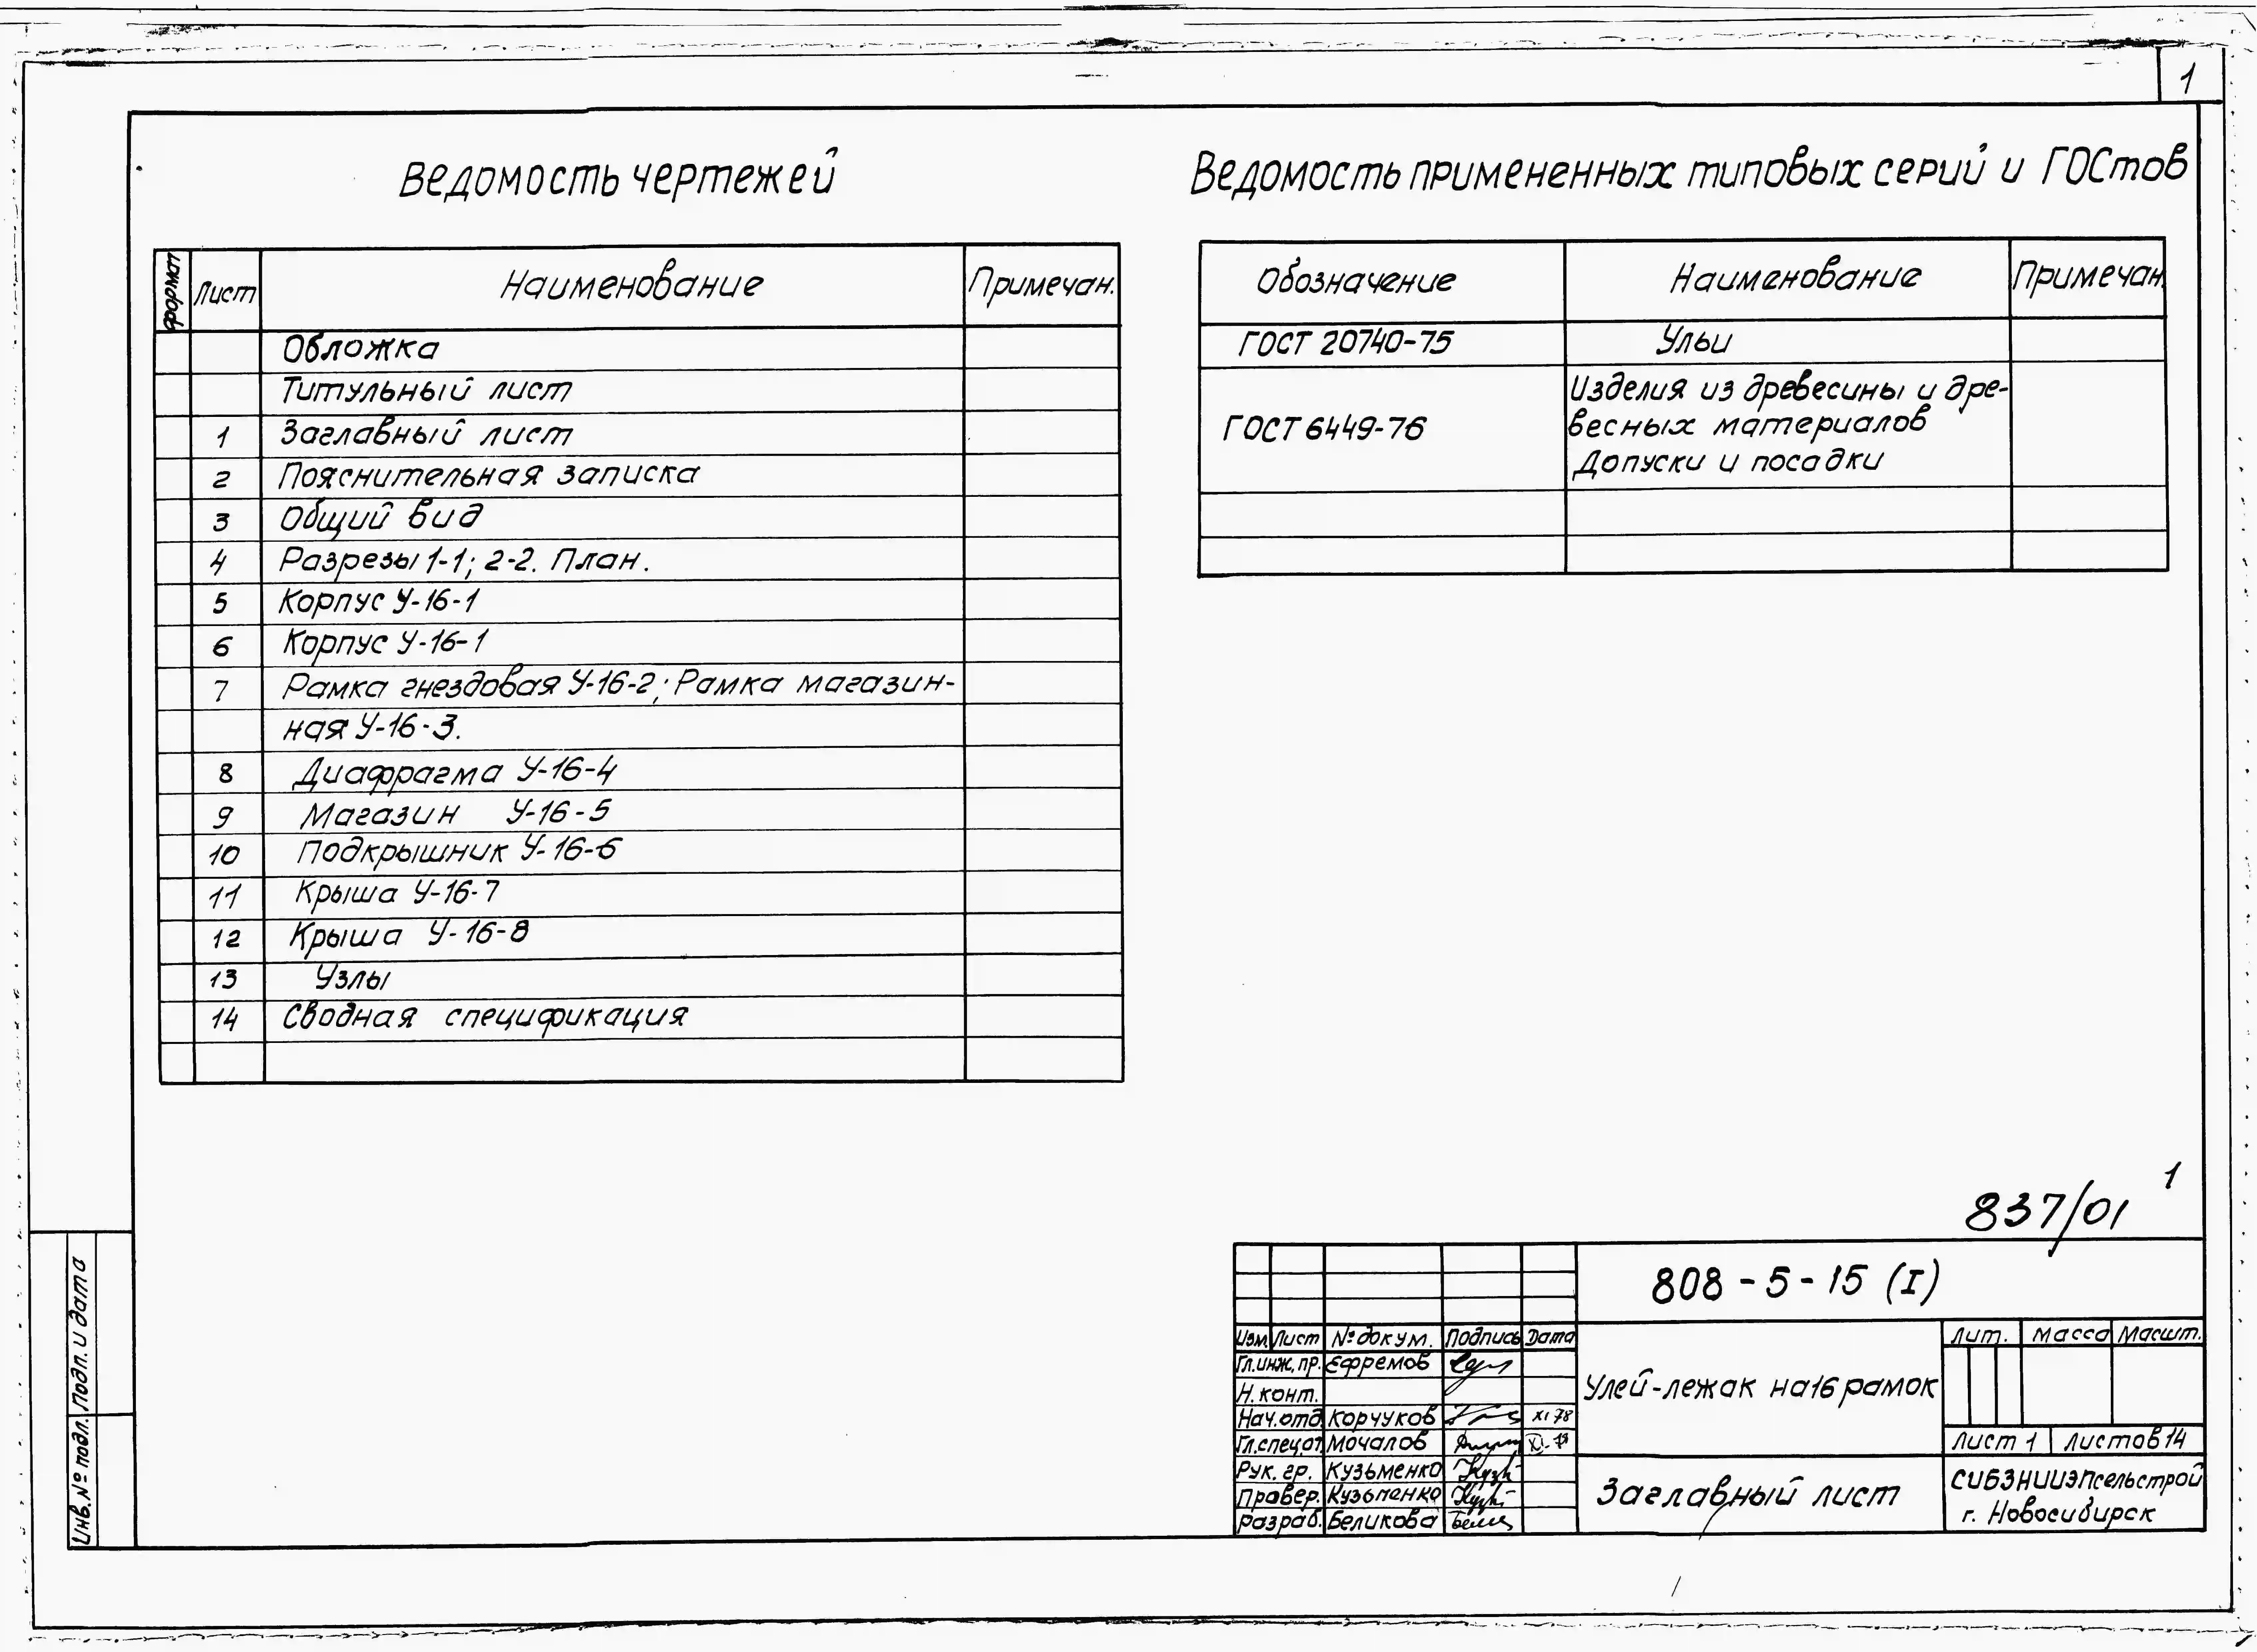 1
Ведомость чертежей
формат Лист Наименование Примечан.
Обложка
Титульный лист
1 Заглавный лист
2 Пояснительная записка
3 Общий вид
4 Разрезы 1-1; 2-2. План.
5 Корпус У-16-1
6 Корпус У-16-1
7 Рамка гнездовая У-16-2; Рамка магазин-
ная У-16-3.
8 Диафрагма У-16-4
9 Магазин У-16-5
10 Подкрышник У-16-6
11 Крыша У-16-7
12 Крыша У-16-8
13 Узлы
14 Сводная спецификация
Ведомость примененных типовых серий и ГОСтов
Обозначение Наименование Примечан.
ГОСТ 20740-75 Ульи
ГОСТ 6449-76 Изделия из древесины и дре-
весных материалов
Допуски и посадки
837/01 1
808-5-15 (I)
Изм. Лист № докум. Подпись Дата
Гл.инж.пр. Ефремов
Н. конт.
Нач.отд. Корчуков XI 78
Гл.спец.от. Мочалов XI-78
Рук. гр. Кузьменко
Провер. Кузьменко
Разраб. Беликова
Улей-лежак на 16 рамок
Лит. Масса Масшт.
Лист 1 Листов 14
Заглавный лист
СИБЗНИИЭПсельстрой
г. Новосибирск
Инв.№ подл. Подп. и дата